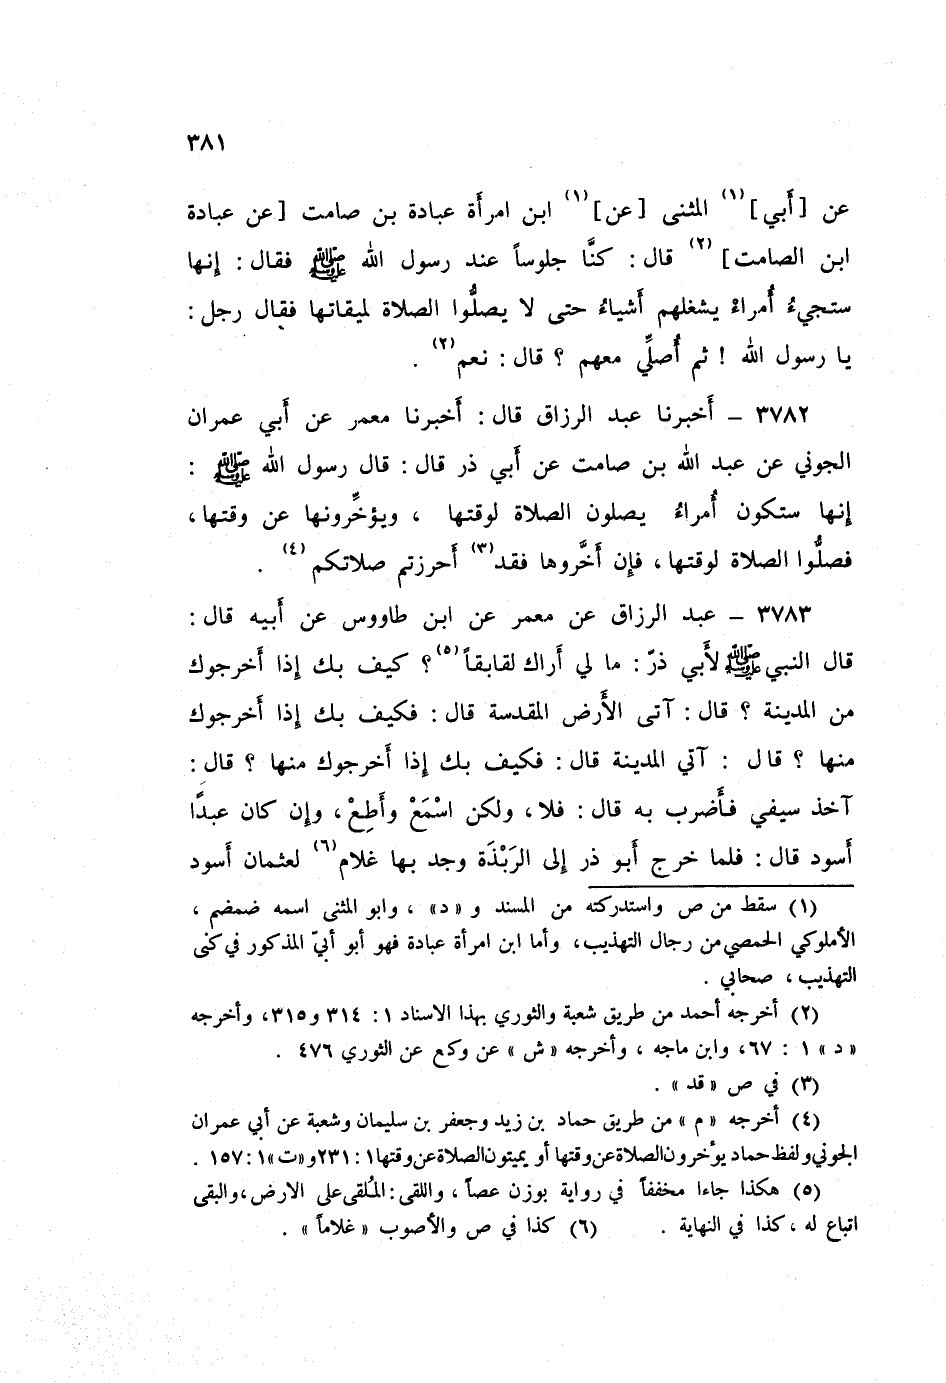 ٣٨١
عن [أَبي] (١) المثنى [عن] (١) ابن امرأَة عبادة بن صامت [عن عبادة
ابن الصامت] (٢) قال : كنَّا جلوساً عند رسول الله ﷺ فقال : إنها
ستجيءُ أُمراءُ يشغلهم أَشياءُ حتى لا يصلُّوا الصلاة لميقاتها فقال رجل :
يا رسول الله ! ثم أُصلِّي معهم ؟ قال : نعم (٢) .
٣٧٨٢ ــ أَخبرنا عبد الرزاق قال : أَخبرنا معمر عن أَبي عمران
الجوني عن عبد الله بن صامت عن أَبي ذر قال : قال رسول الله ﷺ :
إنها ستكون أُمراءُ يصلون الصلاة لوقتها ، ويؤخِّرونها عن وقتها ،
فصلُّوا الصلاة لوقتها ، فإن أَخَّروها فقد (٣) أَحرزتم صلاتكم (٤) .
٣٧٨٣ ــ عبد الرزاق عن معمر عن ابن طاووس عن أَبيه قال :
قال النبي ﷺ لأَبي ذرّ : ما لي أَراك لقابقاً (٥) ؟ كيف بك إذا أَخرجوك
من المدينة ؟ قال : آتى الأَرض المقدسة قال : فكيف بك إذا أَخرجوك
منها ؟ قال : آتي المدينة قال : فكيف بك إذا أَخرجوك منها ؟ قال :
آخذ سيفي فأَضرب به قال : فلا ، ولكن اسْمَعْ وأَطِعْ ، وإن كان عبدًا
أَسود قال : فلما خرج أَبو ذر إلى الرَبْذَة وجد بها غلام (٦) لعثمان أَسود
(١) سقط من ص واستدركته من المسند و «د» ، وابو المثنى اسمه ضمضم ،
الأملوكي الحمصي من رجال التهذيب، وأما ابن امرأة عبادة فهو أبو أبيّ المذكور في كنى
التهذيب ، صحابي .
(٢) أخرجه أحمد من طريق شعبة والثوري بهذا الاسناد ١ : ٣١٤ و٣١٥، وأخرجه
«د» ١ : ٦٧، وابن ماجه ، وأخرجه «ش» عن وكع عن الثوري ٤٧٦ .
(٣) في ص «قد» .
(٤) أخرجه «م» من طريق حماد بن زيد وجعفر بن سليمان وشعبة عن أبي عمران
الجوني ولفظ حماد يوٴخرون الصلاة عن وقتها أو يميتون الصلاة عن وقتها ١ : ٢٣١ و«ت» ١ : ١٥٧ .
(٥) هكذا جاءا مخففاً في رواية بوزن عصاً ، واللقى : المُلقى على الارض ، والبقى
اتباع له ، كذا في النهاية . (٦) كذا في ص والأصوب «غلاماً» .